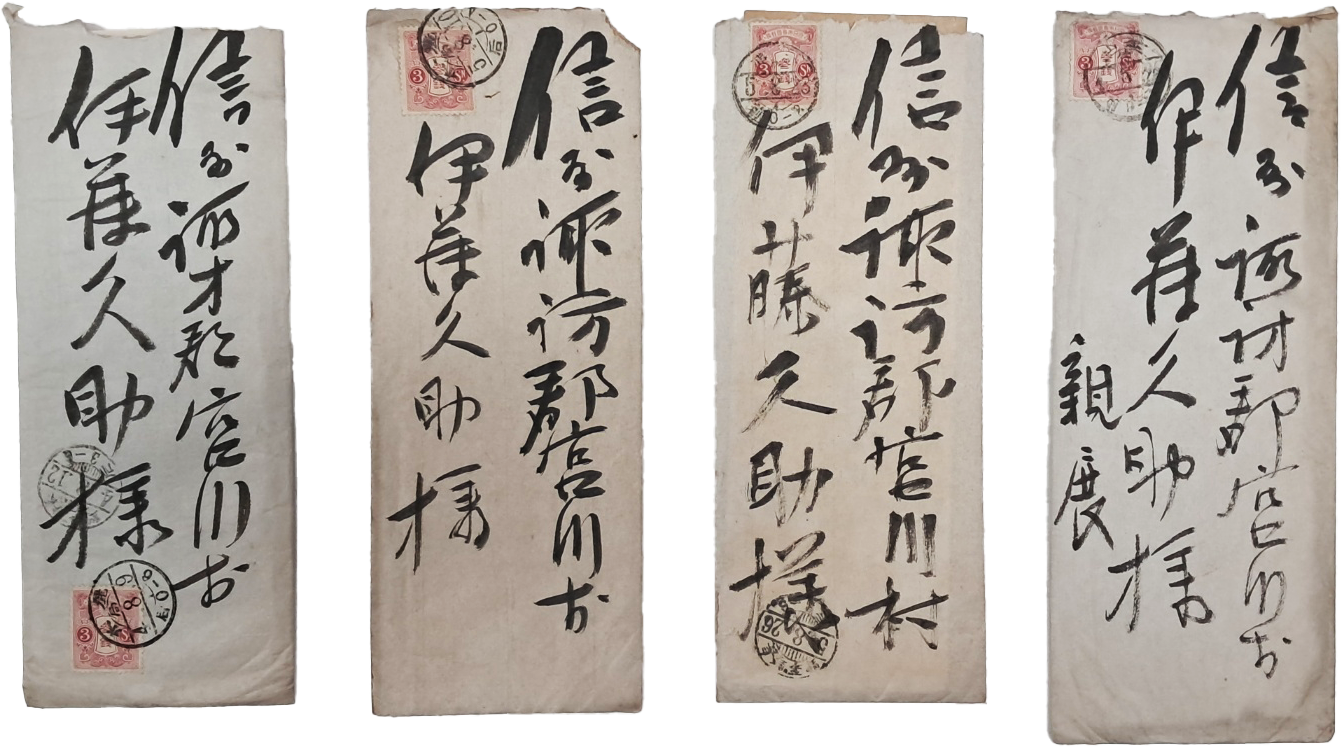 信州諏訪郡宮川村
伊藤久助様
3 Sn
信州諏訪郡宮川村
伊藤久助様
3 Sn
信州諏訪郡宮川村
伊藤久助様
3 Sn
信州諏訪郡宮川村
伊藤久助様
親展
3